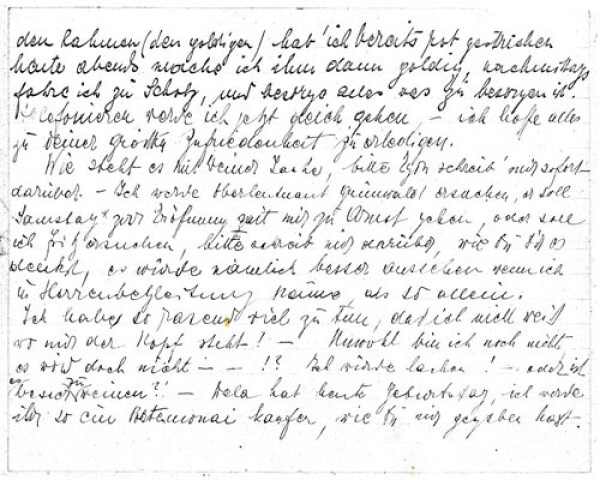 den Rahmen (den goldigen) hab' ich bereits rot gestrichen
heute abend mache ich ihn dann goldig, nachmittags
fahre ich zu Scholz, und besorge alles was zu besorgen ist.
Telefonieren werde ich jetzt gleich gehen, – ich hoffe alles
zu deiner größten Zufriedenheit zu erledigen.
Wie steht es mit deiner Sache, bitte schreib' mir sofort
darüber. – Ich werde Oberleutnant Grünwald ersuchen, er soll
Samstag zur Eröffnung mit mir zu Arnst gehen, oder soll
ich Fritz ersuchen, bitte schreib mir darüber, wie Du es
denkst, es würde nämlich besser aussehen wenn ich
in Herrenbegleitung käme, als so allein.
Ich habe so rasend viel zu tun, daß ich nicht weiß
wo mir der Kopf steht! – Unwohl bin ich noch nicht
es wird doch nicht – – !? Ich würde lachen! – oder ist
es besser zu weinen?! – Hela hat heute Geburtstag, ich werde
ihr so ein Portemonai kaufen, wie Du mir gegeben hast.